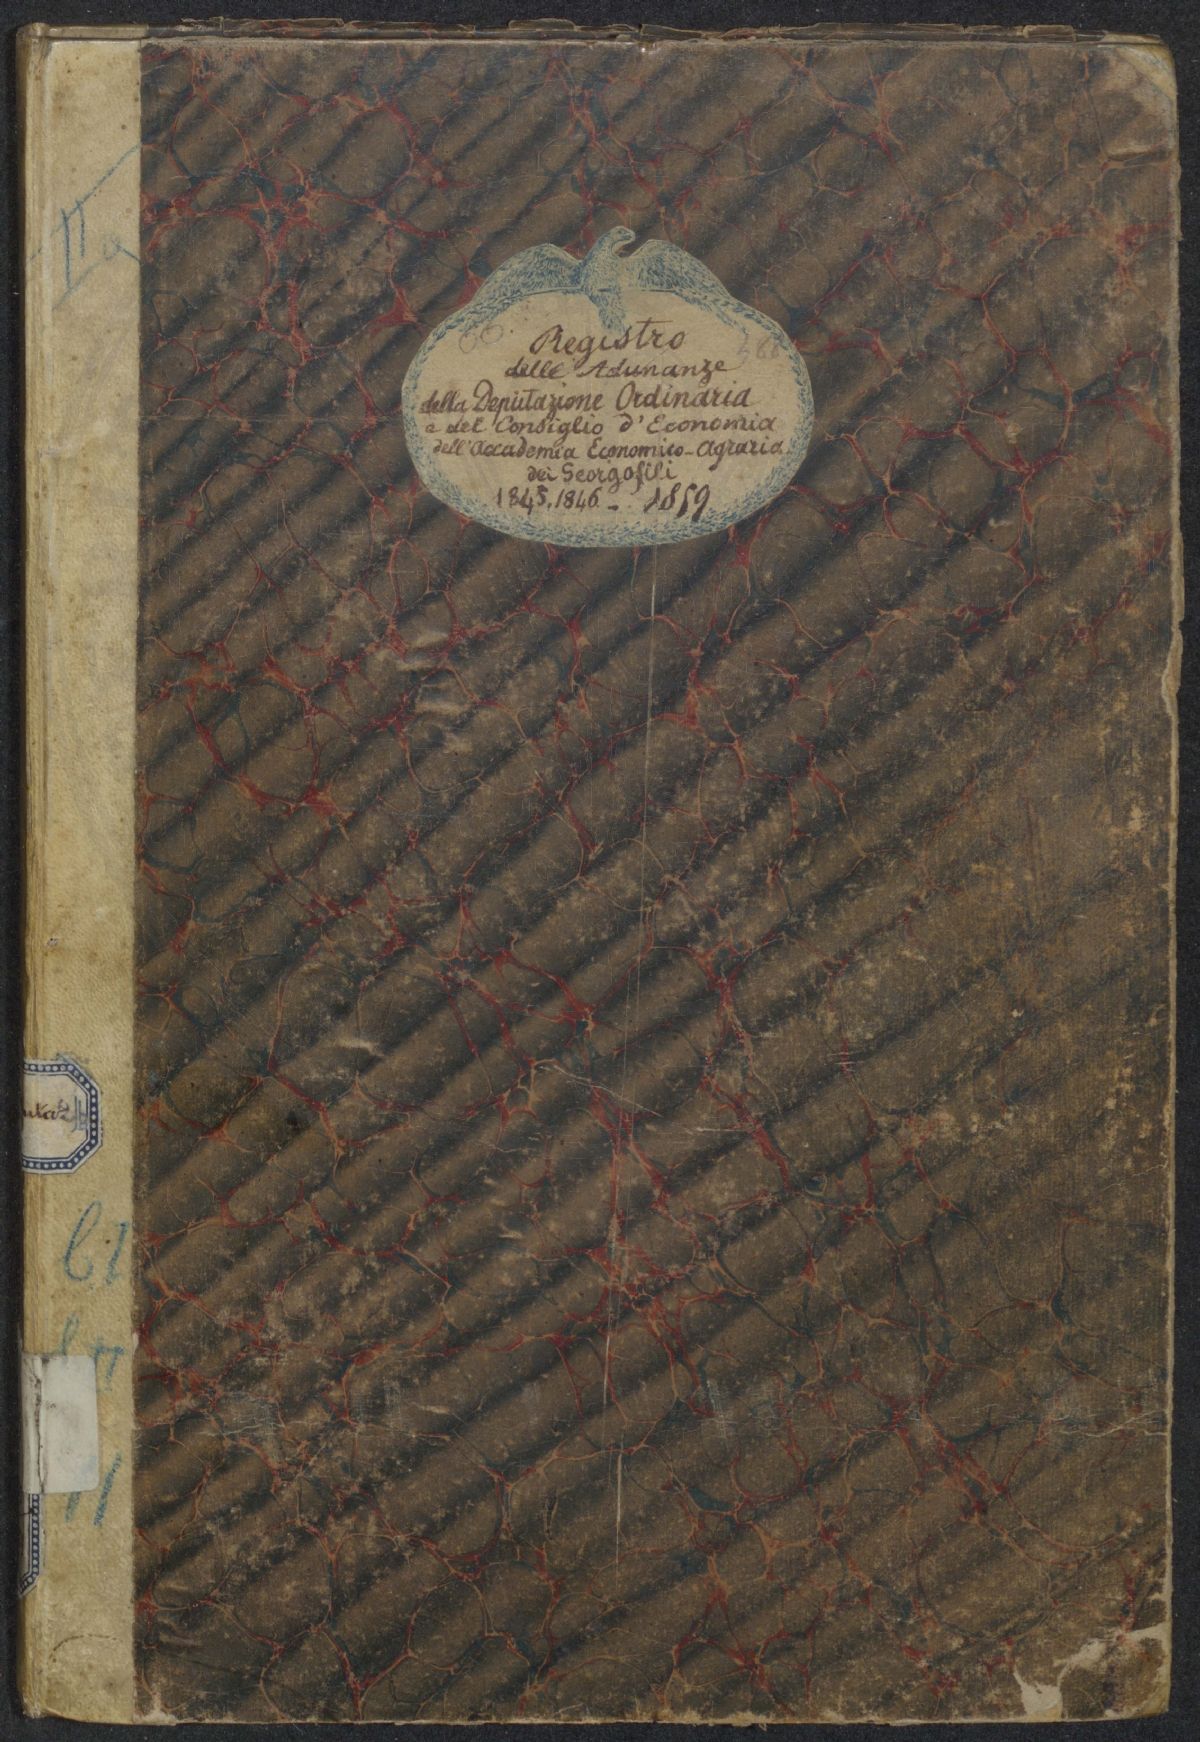 Registro
delle Adunanze
della Deputazione Ordinaria
e del Consiglio d'Economia
dell'Accademia Economico-Agraria
dei Georgofili
1845. 1846 - 1859
II a
b1